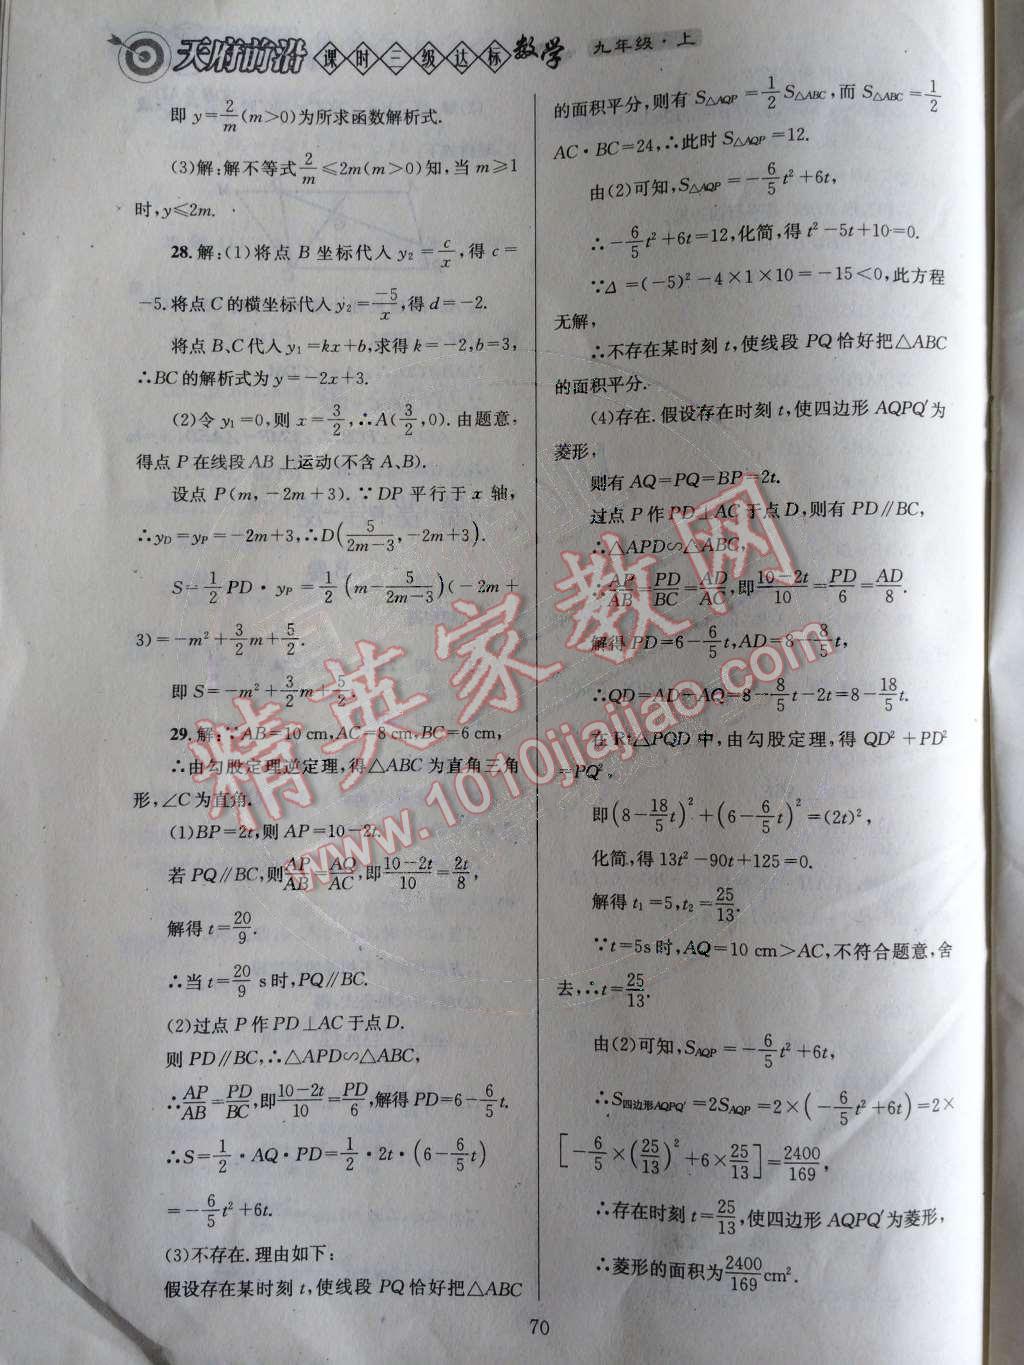 天府前沿 课时三级达标 数学 九年级·上
即 y=2/m(m>0)为所求函数解析式.
(3)解:解不等式 2/m≤2m(m>0)知,当 m≥1
时,y≤2m.
28.解:(1)将点 B 坐标代入 y₂=c/x,得 c=
-5.将点 C 的横坐标代入 y₂=-5/x,得 d=-2.
将点 B、C 代入 y₁=kx+b,求得 k=-2,b=3,
∴BC 的解析式为 y=-2x+3.
(2)令 y₁=0,则 x=3/2,∴A(3/2,0).由题意,
得点 P 在线段 AB 上运动(不含 A、B).
设点 P(m,-2m+3).∵DP 平行于 x 轴,
∴y_D=y_P=-2m+3,∴D(5/(2m-3),-2m+3).
S=1/2 PD·y_P=1/2(m-5/(2m-3))(-2m+
3)=-m²+3/2m+5/2.
即 S=-m²+3/2m+5/2.
29.解:∵AB=10 cm,AC=8 cm,BC=6 cm,
∴由勾股定理逆定理,得△ABC 为直角三角
形,∠C 为直角.
(1)BP=2t,则 AP=10-2t.
若 PQ∥BC,则 AP/AB=AQ/AC,即 (10-2t)/10=2t/8,
解得 t=20/9.
∴当 t=20/9 s时,PQ∥BC.
(2)过点 P 作 PD⊥AC 于点 D.
则 PD∥BC,∴△APD∽△ABC,
∴AP/AB=PD/BC,即 (10-2t)/10=PD/6,解得 PD=6-6/5t.
∴S=1/2·AQ·PD=1/2·2t·(6-6/5t)
=-6/5t²+6t.
(3)不存在.理由如下:
假设存在某时刻 t,使线段 PQ 恰好把△ABC
的面积平分,则有 S△AQP=1/2S△ABC,而 S△ABC=1/2
AC·BC=24,∴此时 S△AQP=12.
由(2)可知,S△AQP=-6/5t²+6t,
∴-6/5t²+6t=12,化简,得 t²-5t+10=0.
∵Δ=(-5)²-4×1×10=-15<0,此方程
无解,
∴不存在某时刻 t,使线段 PQ 恰好把△ABC
的面积平分.
(4)存在.假设存在时刻 t,使四边形 AQPQ′为
菱形,
则有 AQ=PQ=BP=2t.
过点 P 作 PD⊥AC 于点 D,则有 PD∥BC,
∴△APD∽△ABC,
∴AP/AB=PD/BC=AD/AC,即 (10-2t)/10=PD/6=AD/8.
解得 PD=6-6/5t,AD=8-8/5t,
∴QD=AD-AQ=8-8/5t-2t=8-18/5t.
在 Rt△PQD 中,由勾股定理,得 QD²+PD²
=PQ²,
即(8-18/5t)²+(6-6/5t)²=(2t)²,
化简,得 13t²-90t+125=0.
解得 t₁=5,t₂=25/13.
∵t=5s 时,AQ=10 cm>AC,不符合题意,舍
去,∴t=25/13.
由(2)可知,S_AQP=-6/5t²+6t,
∴S四边形AQPQ′=2S_AQP=2×(-6/5t²+6t)=2×
[-6/5×(25/13)²+6×25/13]=2400/169,
∴存在时刻 t=25/13,使四边形 AQPQ′为菱形,
∴菱形的面积为2400/169cm².
70
精英家教网
www.1010jiajiao.com